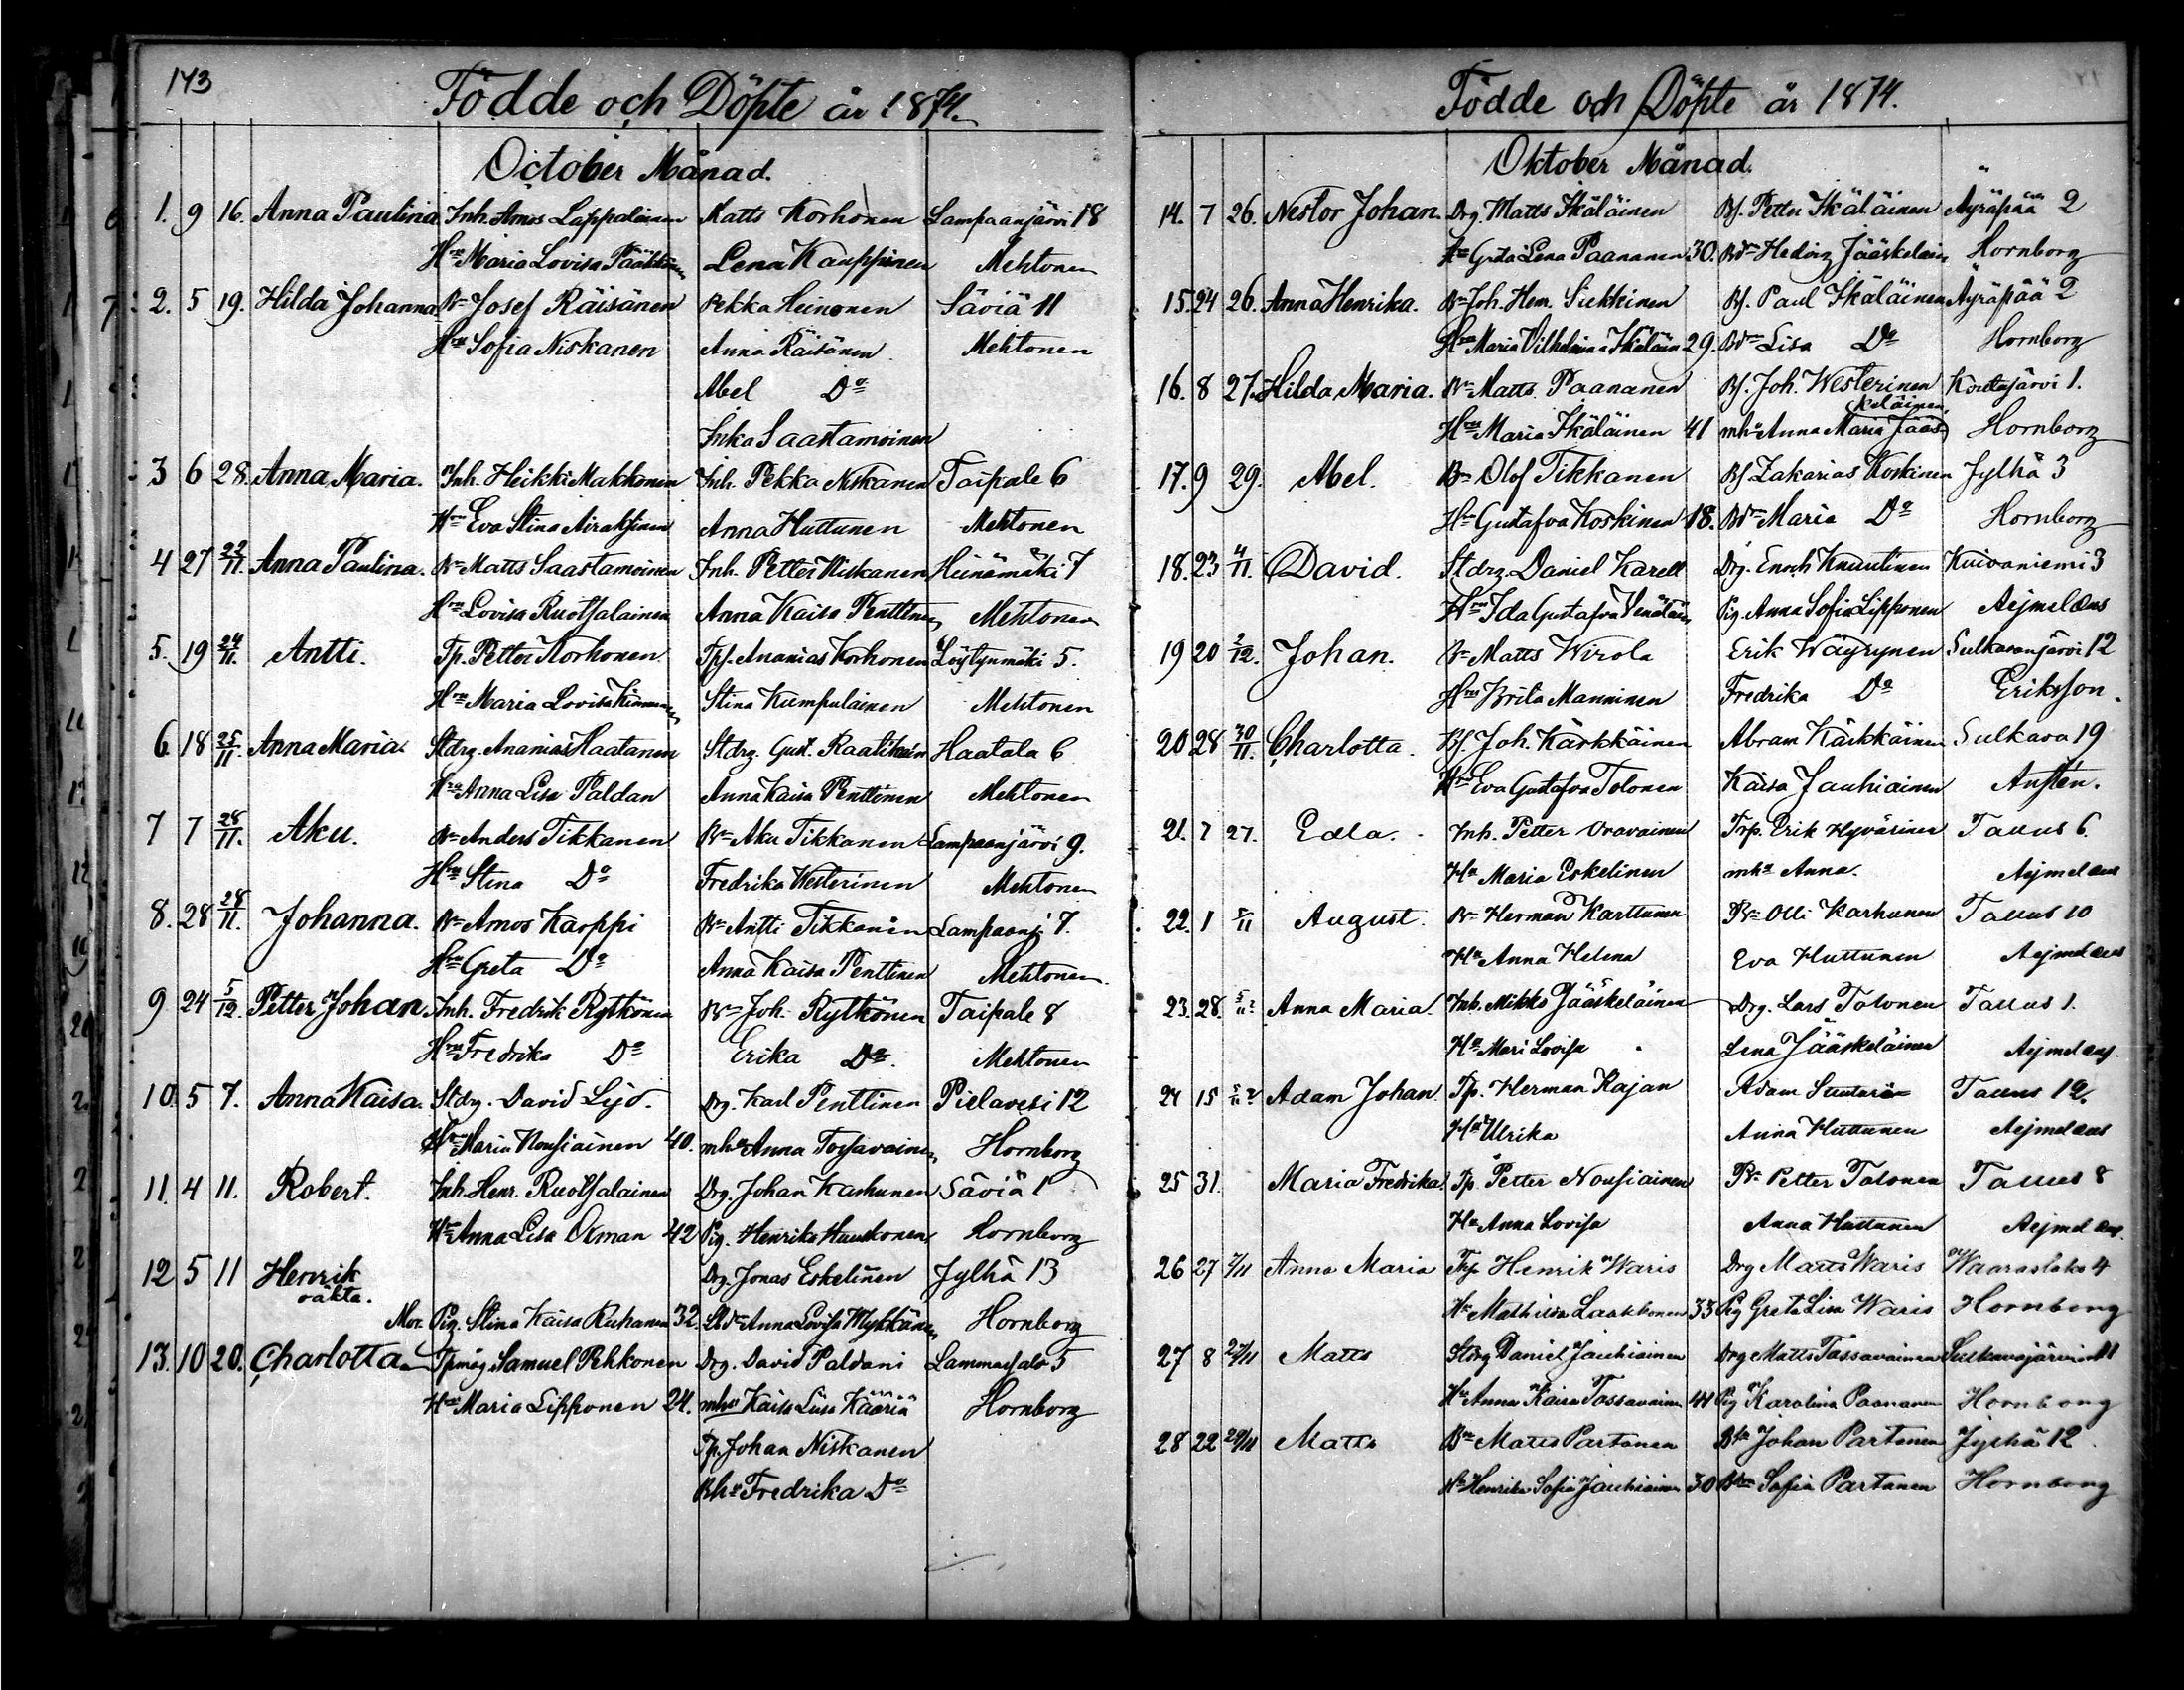 143
Födde och Döpte år 1874.
October Månad.
1. 9 16. Anna Paulina Inh. Amos Lappalainen Matts Korhonen Lampaanjärvi 18
Hru Maria Lovisa Pääkkönen Lena Kauppinen Mehtonen
2. 5 19. Hilda Johanna Bn Josef Räisänen Pekka Heinonen Säviä 11
Hru Sofia Niskanen Anna Räisänen Mehtonen
Abel Do
Inka Saastamoinen
3 6 28. Anna Maria. Inh. Heikki Makkonen Inh. Pekka Niskanen Taipale 6
Hru Eva Stina Airaksinen Anna Huttunen Mehtonen
4 27 22/11. Anna Paulina. Bn Matts Saastamoinen Inh. Petter Niskanen Heinämäki 7
Hru Lovisa Ruotsalainen Anna Kaisa Penttinen Mehtonen
5. 19 24/11. Antti. Tp. Petter Korhonen. Tpf. Ananias Korhonen Löytynmäki 5.
Hru Maria Lovisa Kinnunen Stina Kumpulainen Mehtonen
6 18 25/11. Anna Maria. Stdrg. Ananias Haatanen Stdrg. Gust. Raatikain Haatala 6
Hru Anna Lisa Paldan Anna Kaisa Penttinen Mehtonen
7 7 28/11. Aku. Bn Anders Tikkanen Bn Aku Tikkanen Lampaanjärvi 9.
Hru Stina Do Fredrika Westerinen Mehtonen
8. 28 28/11. Johanna. Bn Amos Karppi Bn Antti Tikkanen Lampaanj. 7.
Hru Greta Do Anna Kaisa Penttinen Mehtonen.
9 24 5/12. Petter Johan Inh. Fredrik Rytkönen Bn Joh. Rytkönen Taipale 8
Hru Fredrika Do Erika Do. Mehtonen
10. 5 7. Anna Kaisa. Stdrg. David Lyö. Drg. Karl Penttinen Pielavesi 12
Hru Maria Nousiainen 40. mhu Anna Tossavainen Hornborg
11. 4 11. Robert. Inh. Henr. Ruotsalainen Drg. Johan Karhunen Säviä 1
Hru Anna Lisa Oxman 42 Pig. Henrika Huuskonen Hornborg
12 5 11 Henrik Drg. Jonas Eskelinen Jylhä 13
oäkta.
Mor. Pig. Stina Kaisa Ruhanen 32. Anna Lovisa Mykkänen Hornborg
13. 10 20. Charlotta Tpmåg Samuel Pehkonen Drg. David Paldani Lammassalo 5
Hru Maria Lipponen 24. mhu Kaisa Lisa Kääriä Hornborg
Tp. Johan Niskanen
Bhu Fredrika Do
Födde och Döpte år 1874.
Oktober Månad.
14. 7 26. Nestor Johan. Drg. Matts Ikäläinen Bs. Petter Ikäläinen Äyräpää 2
Hru Greta Lena Paananen 30. Bdr Hedvig Jääskeläin Hornborg
15. 24 26. Anna Henrika. Bn Joh. Henr. Siekkinen Bs. Paul Ikäläinen Äyräpää 2
Hru Maria Vilhelmina Ikäläin 29. Bdr Lisa Do Hornborg
16. 8 27. Hilda Maria. Bn Matts Paananen Bs. Joh. Westerinen Koutajärvi 1.
Hru Maria Ikäläinen 41 mhu Anna Maria Jääs- Hornborg
keläinen
17. 9 29. Abel. Bn Olof Tikkanen Bs. Zakarias Koskinen Jylhä 3
Hru Gustafva Koskinen 18. Bdr Maria Do Hornborg
18. 23 4/11. David. Stdrg. Daniel Karell Drg. Enoch Knuutinen Kuivaniemi 3
Hru Ida Gustafva Venäläin Pig. Anna Sofia Lipponen Aejmelæus
19 20 2/12. Johan. Bn Matts Wirola Erik Wäyrynen Sulkavanjärvi 12
Hru Brita Manninen Fredrika Do Eriksson.
20 28 30/11. Charlotta. Bs. Joh. Kärkkäinen Abram Kärkkäinen Sulkava 19
Hru Eva Gustafva Tolonen Kaisa Jauhiainen Austén.
21. 7 27. Edla. Inh. Petter Oravainen Trp. Erik Hyvärinen Tallus 6.
Hu Maria Eskelinen mhu Anna. Aejmelæus
22. 1 5/11 August. Bn Herman Karttunen Bn Olli Karhunen Tallus 10
Hu Anna Helena Eva Huttunen Aejmelæus
23. 28. 5/11 Anna Maria. Inh. Mikko Jääskeläinen Drg. Lars Tolonen Tallus 1.
Hu Mari Lovisa " Lena Jääskeläinen Aejmelæus.
24 15 5/11 Adam Johan Tp. Herman Kajan Adam Suutarin Tallus 12.
Hu Ulrika Anna Huttunen Aejmelæus
25 31. Maria Fredrika. Tp. Petter Nousiainen Bn Petter Tolonen Tallus 8
Hu Anna Lovisa Anna Huttunen Aejmelæus.
26 27 7/11 Anna Maria Tp Henrik Waris Drg Matts Waris Waaraslahti 4
Hu Mathilda Laakkonen 33 Pig Greta Lisa Waris Hornborg
27 8 21/11 Matts Stdrg Daniel Jauhiainen Drg Matts Tossavainen Sulkavajärvi 11
Hu Anna Kaisa Tossavainen 44 Pig Karolina Paananen Hornborg
28 22 29/11 Matts Bn Matts Partanen Bs Johan Partanen Jylhä 12
Hu Henrika Sofia Jauhiainen 30 Bdr Sofia Partanen Hornborg